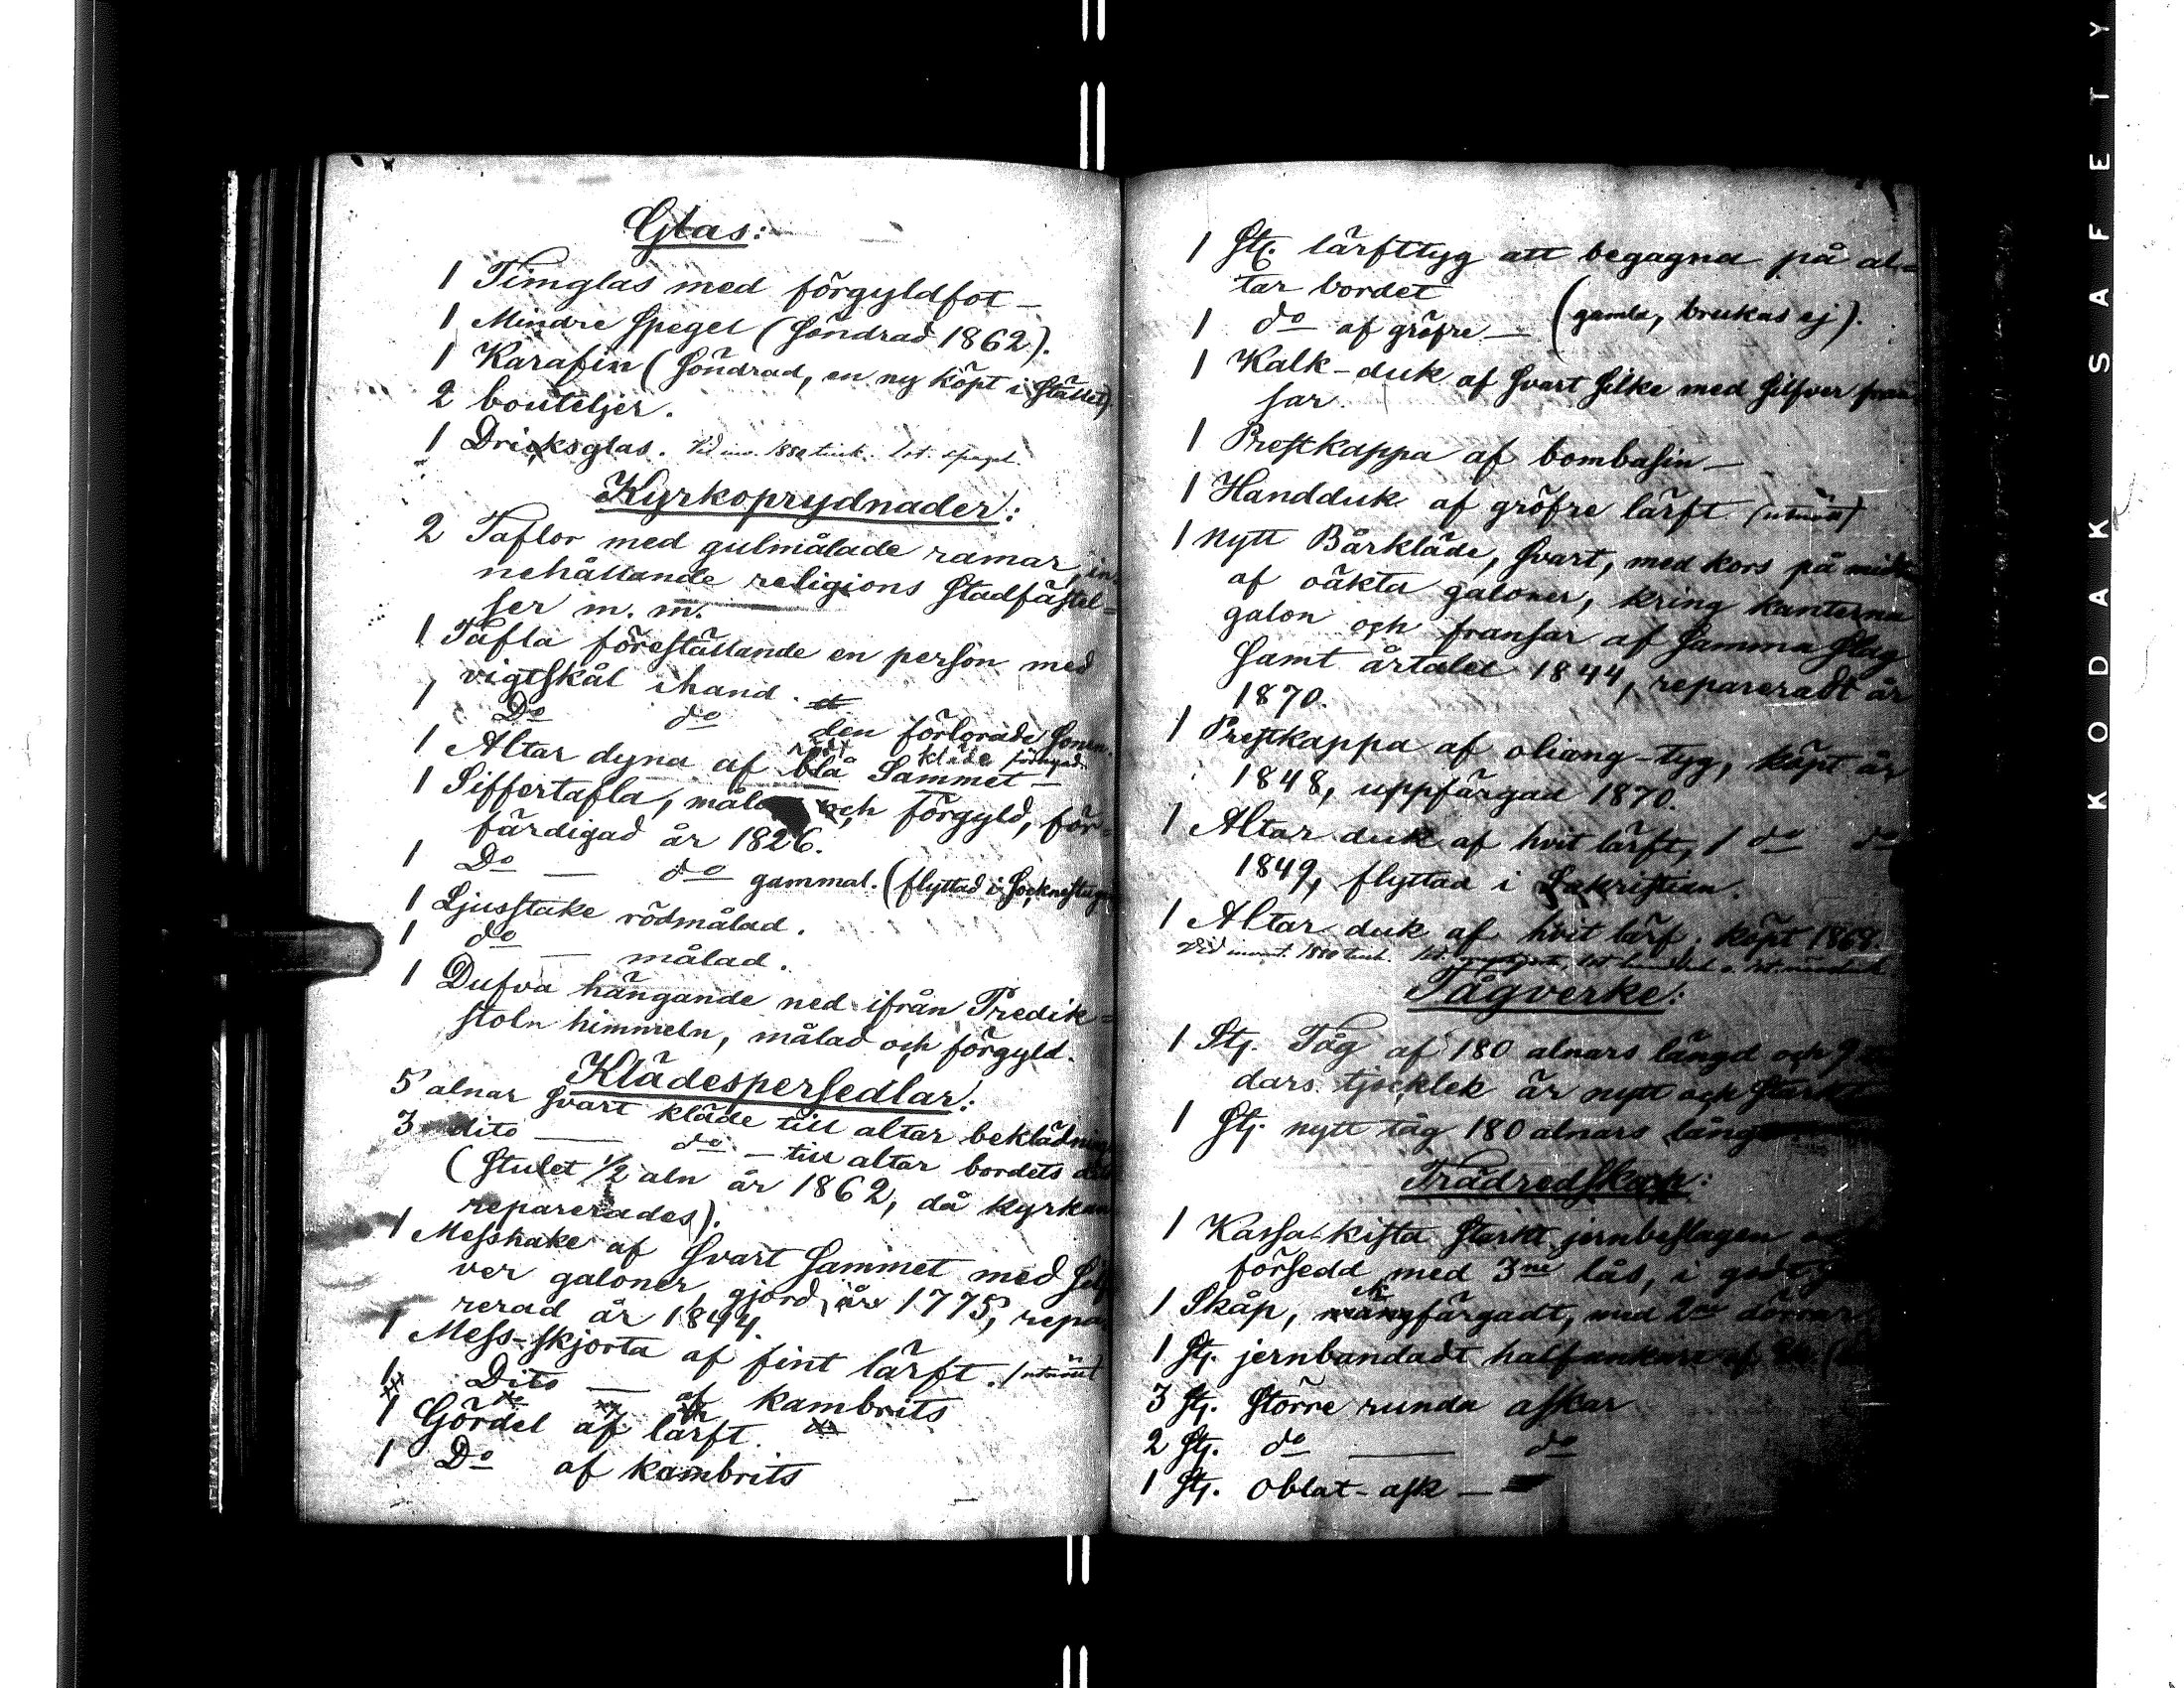 Glas:
1 Timglas med förgyldfot —
1 Mindre Spegel (Söndrad 1862).
1 Karafin (Söndrad, en ny köpt i Stället)
2 bouteljer.
1 Dricksglas.
Kyrkoprydnader:
2 Taflor med gulmålade ramar, in-
nehållande religions Stadfästel=
ser m. m.
1 Tafla föreställande en person med
vigtskål i hand.
1 Do do den förlorade Sonen.
1 Altar dyna af blå Sammet — rödt kläde
1 Siffertafla, målad och förgyld, för-
färdigad år 1826.
1 Do — do gammal. (flyttad i Socknestugan
1 Ljusstake rödmålad.
1 do — målad.
1 Dufva hängande ned ifrån Predik=
stoln himmeln, målad och förgyld.
Klädespersedlar:
5 alnar Svart kläde till altar beklädning
3 dito — do — till altar bordets
(Stulet 1/2 aln år 1862, då kyrkan
reparerades).
1 Messhake af Svart Sammet med Sil
ver galoner gjord år 1775, repa
rerad år 1844.
1 Mess-skjorta af fint lärft.
1 Dito — af kambrits
1 Gördel af lärft.
1 Do af kambrits
1 Stj. lärfttyg att begagna på al=
tar bordet
1 do af gröfre — (gamla, brukas ej).
1 Kalk-duk af Svart Silke med Silfver fran
sar.
1 Prestkappa af bombasin —
1 Handduk af gröfre lärft (utnött)
1 nytt Bårkläde, Svart, med kors på midten
af oäkta galoner, kring kanterna
galon och fransar af Samma Slag
Samt årtalet 1844, repareradt år
1870.
1 Prestkappa af oliang-tyg, köpt år
1848, uppfärgad 1870.
1 Altar duk af hvit lärft, 1 do do
1849, flyttad i Sakristian.
1 Altar duk af hvit lärf. köpt 1868.
Vid invent. 1880
Tågverke:
1 Stj. Tåg af 180 alnars längd och 9
dars tjocklek är nytt och Starkt
1 Stj. nytt tåg 180 alnars
Trädredskap:
1 Kassa-kista Starkt jernbeslagen
försedd med 3ne lås, i godt
1 Skåp, mångfärgadt, med 2ne dörrar
1 Stj. jernbandadt halfankare af
3 Stj. Större runda askar
2 Stj. do — do
1 Stj. oblat-ask —
KODAK SAFETY